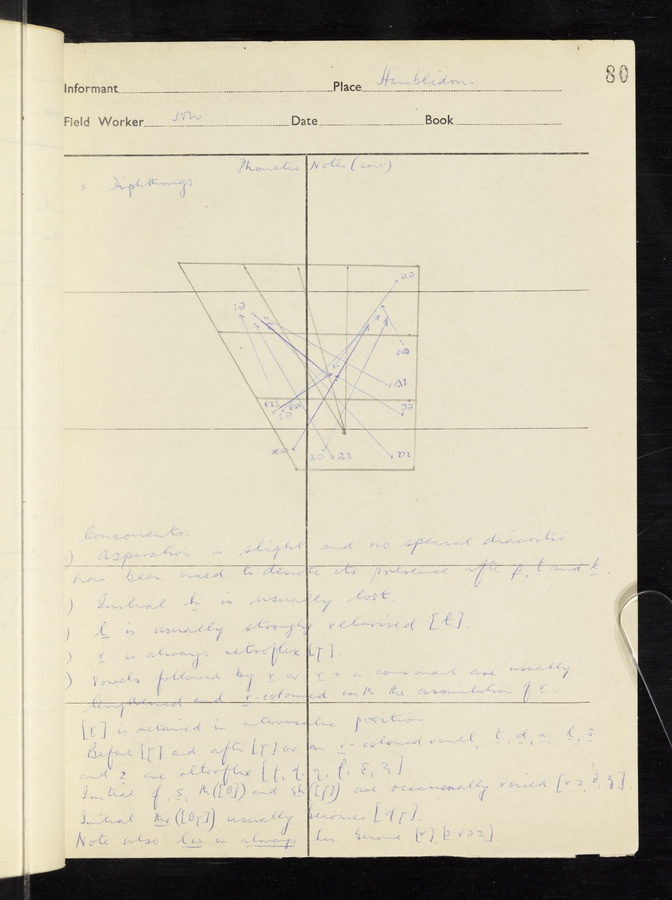 80
Informant Place Hambledon.
Field Worker Date Book
Phonetic Notes (cont)
Diphthongs
Consonants.
) Aspiration is slight and no special diacritic
has been used to denote its presence after p, t and k.
) Initial h is usually lost.
) l is usually strongly velarised [ɫ].
) r is always retroflex [ɽ].
) Vowels followed by r or r + a consonant are usually
lengthened and r-coloured with the assimilation of r.
[ɽ] is retained in intervocalic position.
Before [ɽ] and after [ɽ] or an r-coloured vowel, t, d, n, l, s
and z are retroflex [ʈ, ɖ, ɳ, ɭ, ʂ, ʐ].
Initial f, s, th ([θ]) and sh ([ʃ]) are occasionally voiced [v, z, ð, ʒ].
Initial thr ([θɽ]) usually becomes [dɽ].
Note also has become